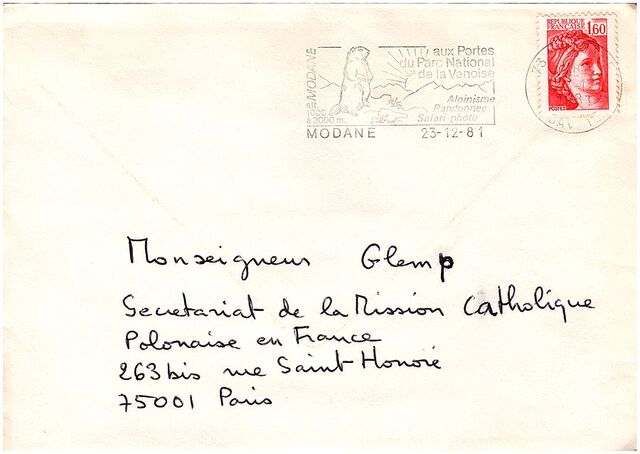 aux Portes
du Parc National
de la Vanoise
MODANE
Alpinisme
Randonnée
Safari-photo
1000
à 3000 m.
MODANE 23-12-81
REPUBLIQUE
FRANÇAISE 1,60
POSTES
73
Monseigneur Glemp
Secretariat de la Mission Catholique
Polonaise en France
263 bis rue Saint-Honoré
75001 Paris